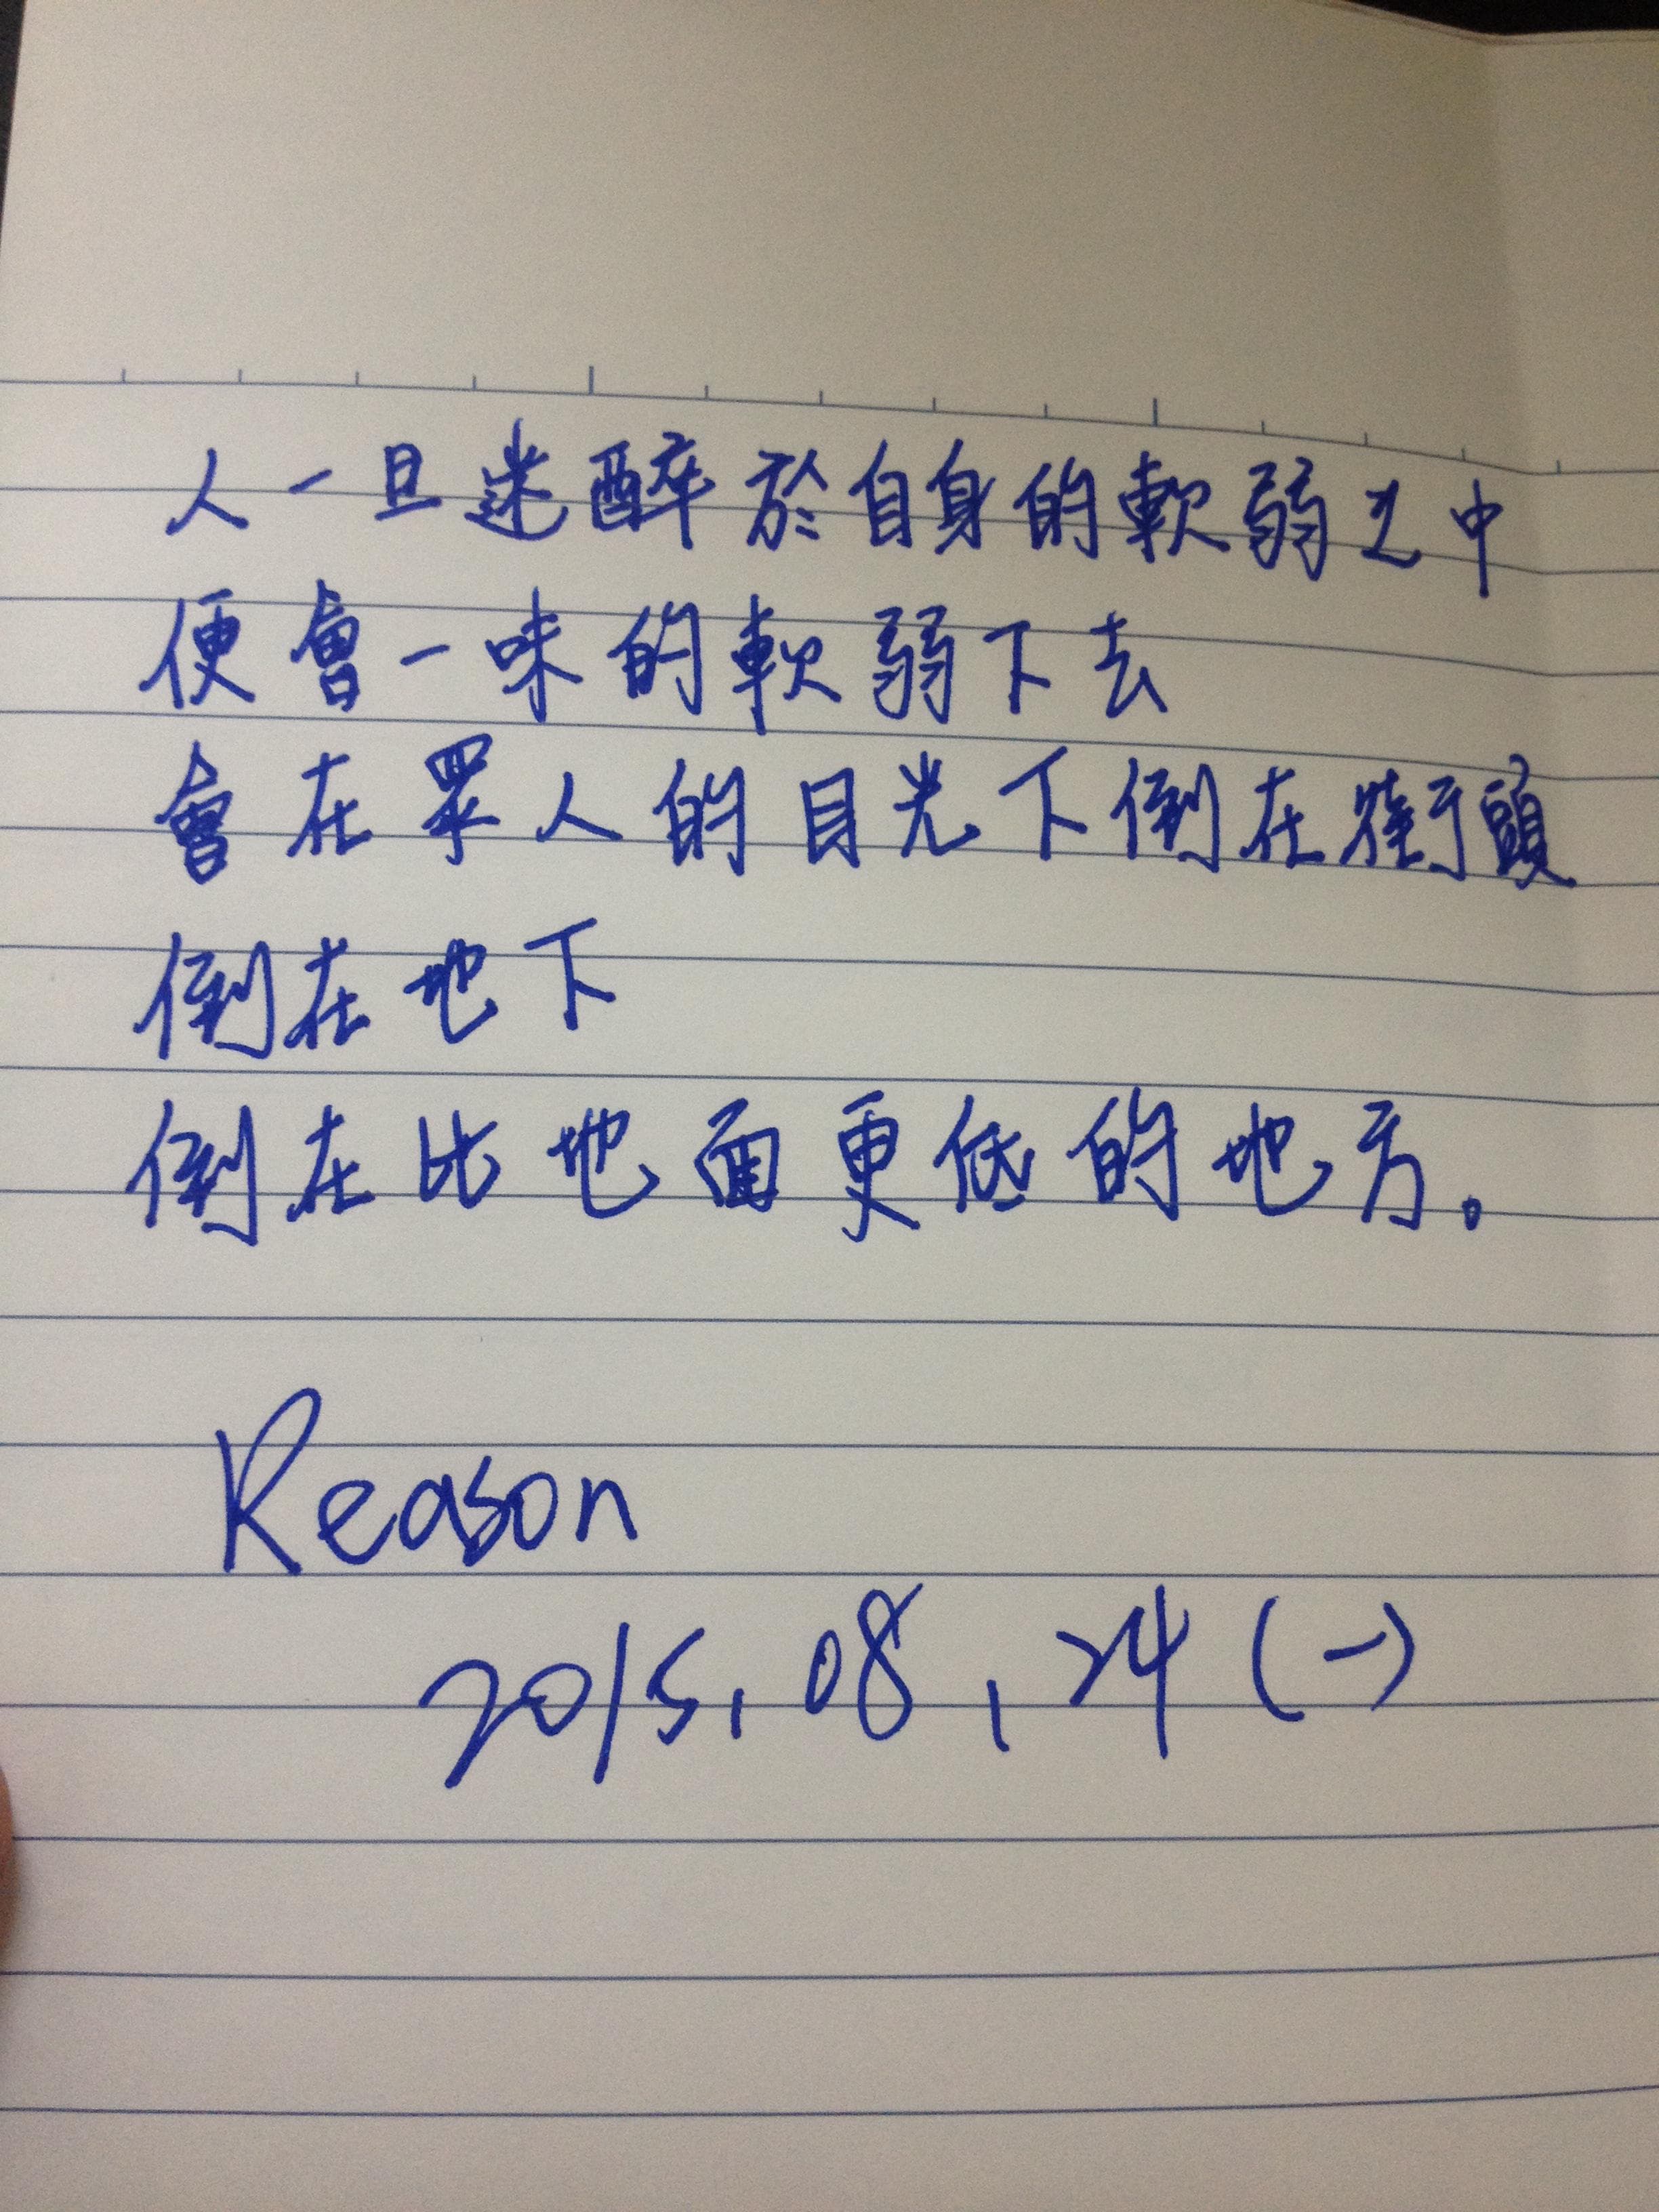 人一旦迷醉於自身的軟弱之中
便會一味的軟弱下去
會在眾人的目光下倒在街頭
倒在地下
倒在比地面更低的地方。
Reason
2015,08,24(一)